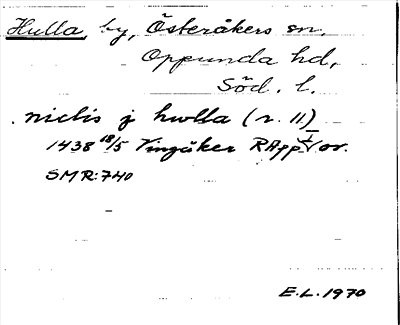 Hulla, by, Österåkers sn,
Oppunda hd,
Söd. l.
niclis j hwlla (r. 11)
1438 18/5 Vingåker RApp or.
SMR:740
E.L. 1970